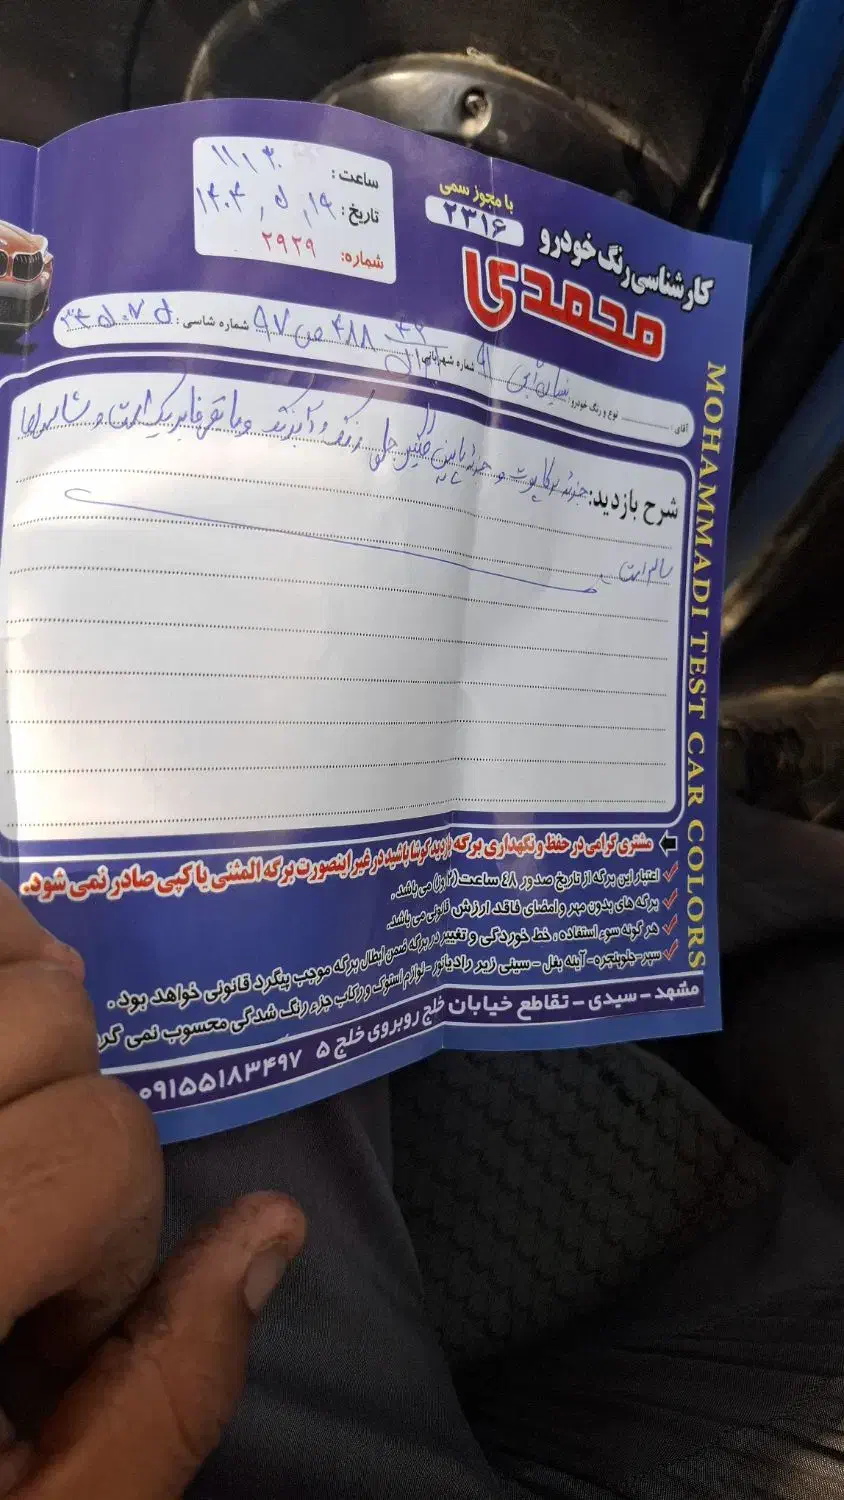 کارشناسی رنگ خودرو
محمدی
با مجوز رسمی
۲۳۱۶
ساعت: ۱۱،۳۰
تاریخ: ۱۹، ۵، ۱۴۰۴
شماره: ۲۹۲۹
آقای: نوع و رنگ خودرو: آبی شماره شهربانی: ۴۸۸ ص ۹۷ شماره شاسی:
شرح بازدید: جزئی کاپوت و جزئی پایین جلو رنگ و مابقی فابریک است و شاسی‌ها
سالم است
MOHAMMADI TEST CAR COLORS
مشتری گرامی در حفظ و نگهداری برگه بازدید کوشا باشید در غیر اینصورت برگه المثنی یا کپی صادر نمی شود.
اعتبار این برگه از تاریخ صدور ٤٨ ساعت (۲ روز) می باشد.
برگه های بدون مهر و امضای فاقد ارزش قانونی می باشد.
هر گونه سوء استفاده، خط خوردگی و تغییر در برگه ضمن ابطال برگه موجب پیگرد قانونی خواهد بود.
سپر-جلوپنجره-آینه بغل-سینی زیر رادیاتور-لوازم استوک و رکاب جزء رنگ شدگی محسوب نمی گر
مشهد - سیدی - تقاطع خیابان خلج روبروی خلج ۵ ۰۹۱۵۵۱۸۳۴۹۷